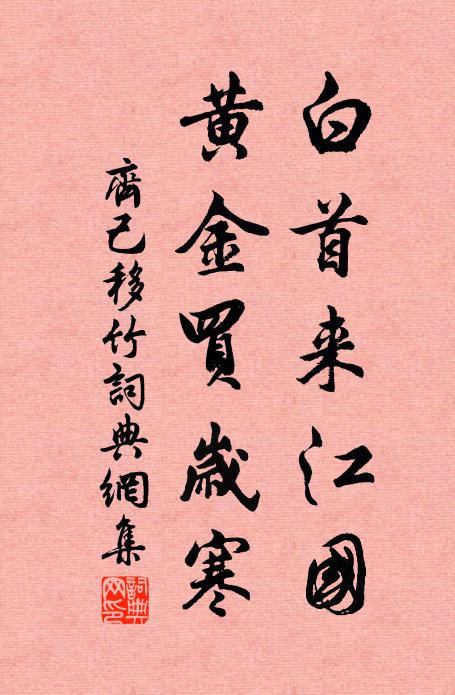 白首来江國
黃金買歲寒
齊己移竹詞典網集
詞典网印